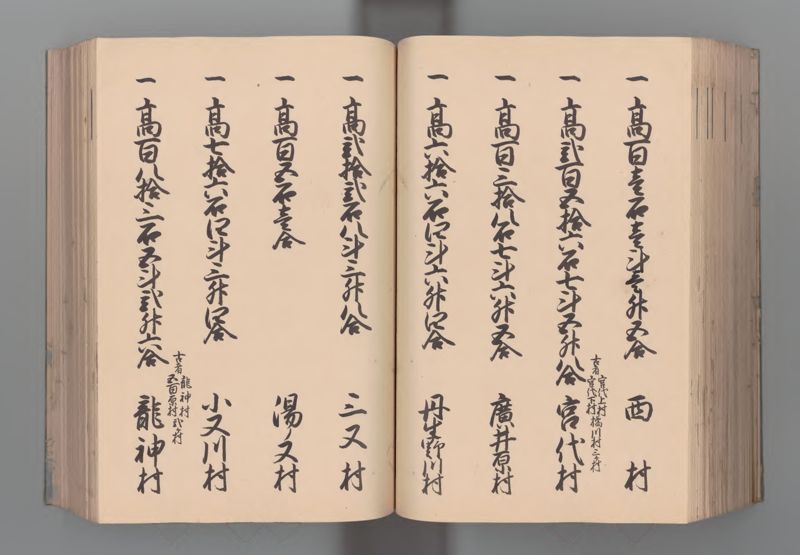 一 高百壱石壱斗壱升五合 西村
一 高弐百五拾六石七斗五升八合 宮代村
古者 宮代上村 橋川村 三ヶ村
宮代下村
一 高百三拾八石七斗六升五合 廣井原村
一 高六拾六石四斗六升四合 丹生野川村
一 高弐拾弐石八斗三升八合 三又村
一 高百五石壱合 湯ノ又村
一 高七拾六石四斗三升四合 小又川村
一 高百八拾三石五斗弐升六合 龍神村
古者 龍神村 弐ヶ村
五百原村